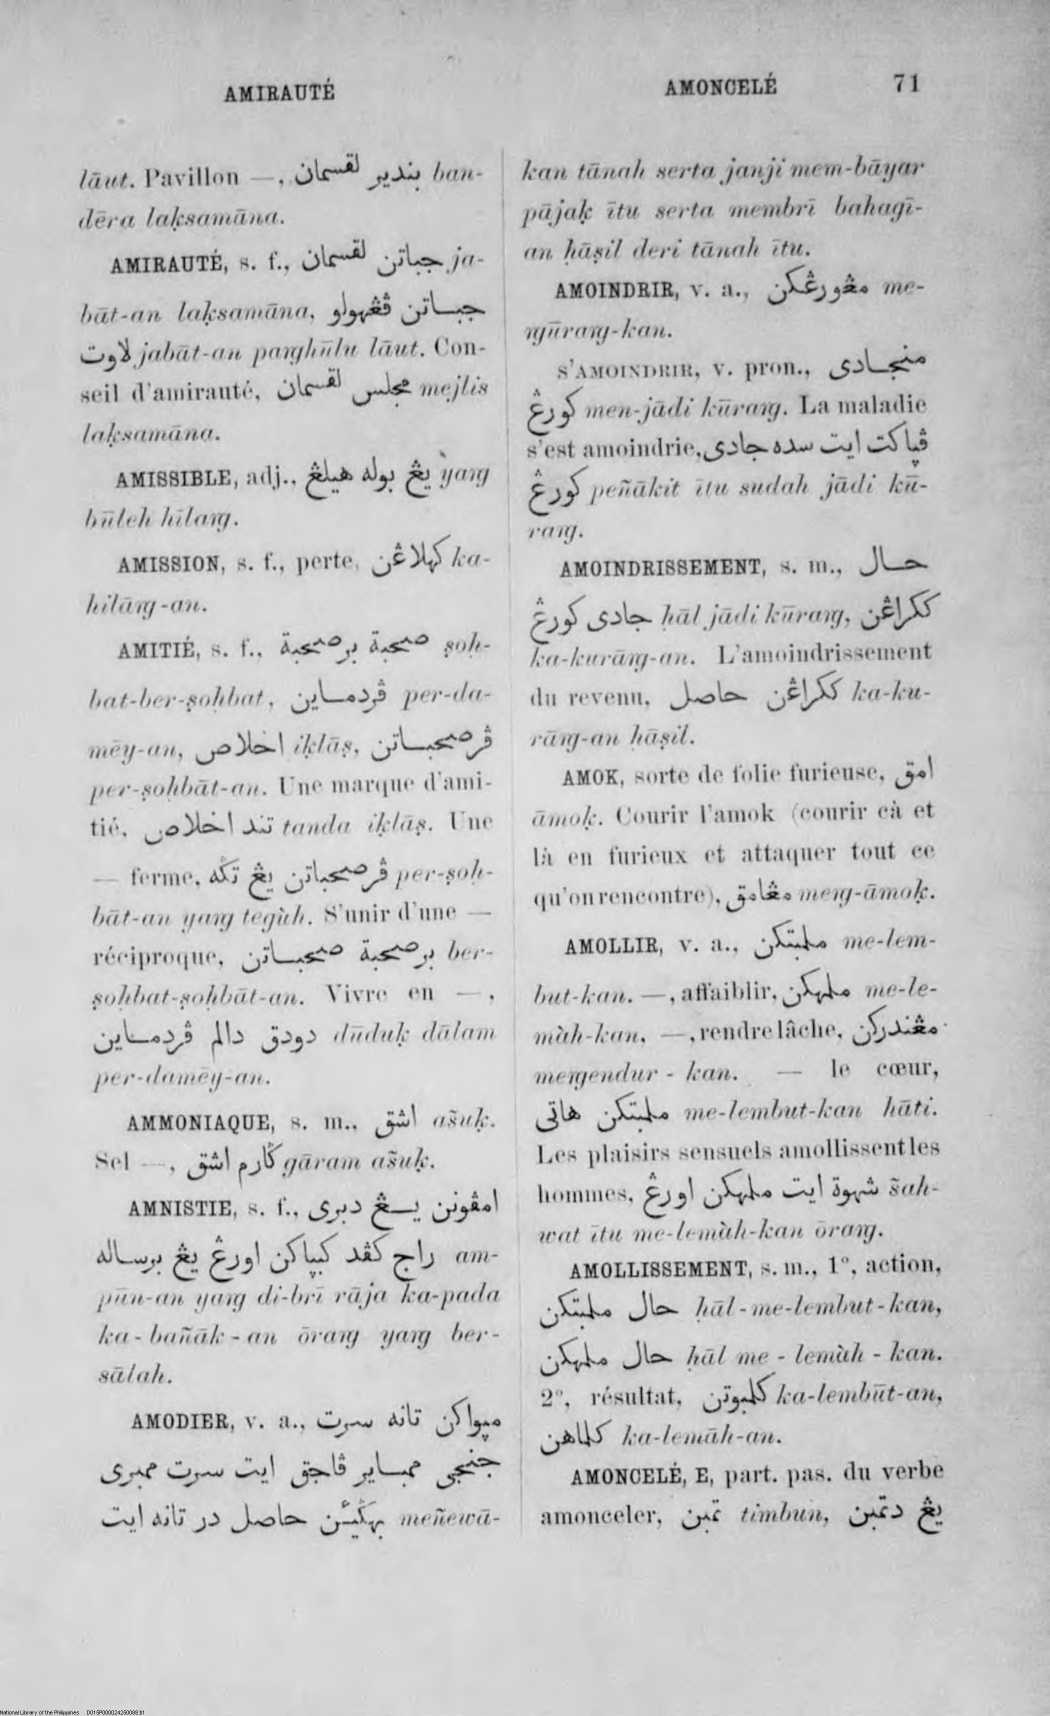 AMIRAUTÉ
AMONCELÉ 71
lāut. Pavillon —, بندير لقسمان ban-
dēra laḳsamāna.
AMIRAUTÉ, s. f., جباتن لقسمان ja-
bāt-an laḳsamāna, جباتن ڤڠهولو
لاوت jabāt-an parghūlu lāut. Con-
seil d'amirauté, مجلس لقسمان mejlis
laḳsamāna.
AMISSIBLE, adj., يڠ بوله هيلڠ yarg
būleh hīlarg.
AMISSION, s. f., perte, كهلاڠن ka-
hilārg-an.
AMITIÉ, s. f., صحبة برصحبة ṣoḥ-
bat-ber-ṣoḥbat, ڤردماين per-da-
mēy-an, اخلاص iḳlāṣ, ڤرصحباتن
per-ṣoḥbāt-an. Une marque d'ami-
tié, تند اخلاص tanda iḳlāṣ. Une
— ferme, ڤرصحباتن يڠ تݢه per-ṣoḥ-
bāt-an yarg tegùh. S'unir d'une —
réciproque, برصحبة صحباتن ber-
ṣoḥbat-ṣoḥbāt-an. Vivre en —,
دودق دالم ڤردماين dūduḳ dālam
per-damēy-an.
AMMONIAQUE, s. m., اشق as̃uḳ.
Sel —, ݢارم اشق gāram as̃uḳ.
AMNISTIE, s. f., امڤونن يڠ دبرى
راج كڤد كبڽاكن اورڠ يڠ برساله am-
pūn-an yarg di-brī rāja ka-pada
ka-bañāk-an ōrarg yarg ber-
sālah.
AMODIER, v. a., مڽواكن تانه سرت
جنجي ممباير ڤاجق ايت سرت ممبرى
بهݢيئن حاصل در تانه ايت meñewā-
kan tānah serta janji mem-bāyar
pājaḳ ītu serta membrī bahagī-
an ḥāṣil deri tānah ītu.
AMOINDRIR, v. a., مڠورڠكن me-
rgūrarg-kan.
S'AMOINDRIR, v. pron., منجادى
كورڠ men-jādi kūrarg. La maladie
s'est amoindrie, ڤڽاكت ايت سده جادى
كورڠ peñākit ītu sudah jādi kū-
rarg.
AMOINDRISSEMENT, s. m., حال
جادى كورڠ ḥāl jādi kūrarg, ككراڠن
ka-kurārg-an. L'amoindrissement
du revenu, ككراڠن حاصل ka-ku-
rārg-an ḥāṣil.
AMOK, sorte de folie furieuse, امق
āmoḳ. Courir l'amok (courir cà et
là en furieux et attaquer tout ce
qu'on rencontre), مڠامق merg-āmoḳ.
AMOLLIR, v. a., ملمبتكن me-lem-
but-kan. —, affaiblir, ملمهكن me-le-
màh-kan, —, rendre lâche, مڠندركن
mergendur-kan. — le cœur,
ملمبتكن هاتى me-lembut-kan hāti.
Les plaisirs sensuels amollissent les
hommes, شهوة ايت ملمهكن اورڠ s̃ah-
wat ītu me-lemàh-kan ōrarg.
AMOLLISSEMENT, s. m., 1°, action,
حال ملمبتكن ḥāl-me-lembut-kan,
حال ملمهكن ḥāl me-lemàh-kan.
2°, résultat, كلمبوتن ka-lembūt-an,
كلماهن ka-lemāh-an.
AMONCELÉ, E, part. pas. du verbe
amonceler, تمبن timbun, يڠ دتمبن
National Library of the Philippines